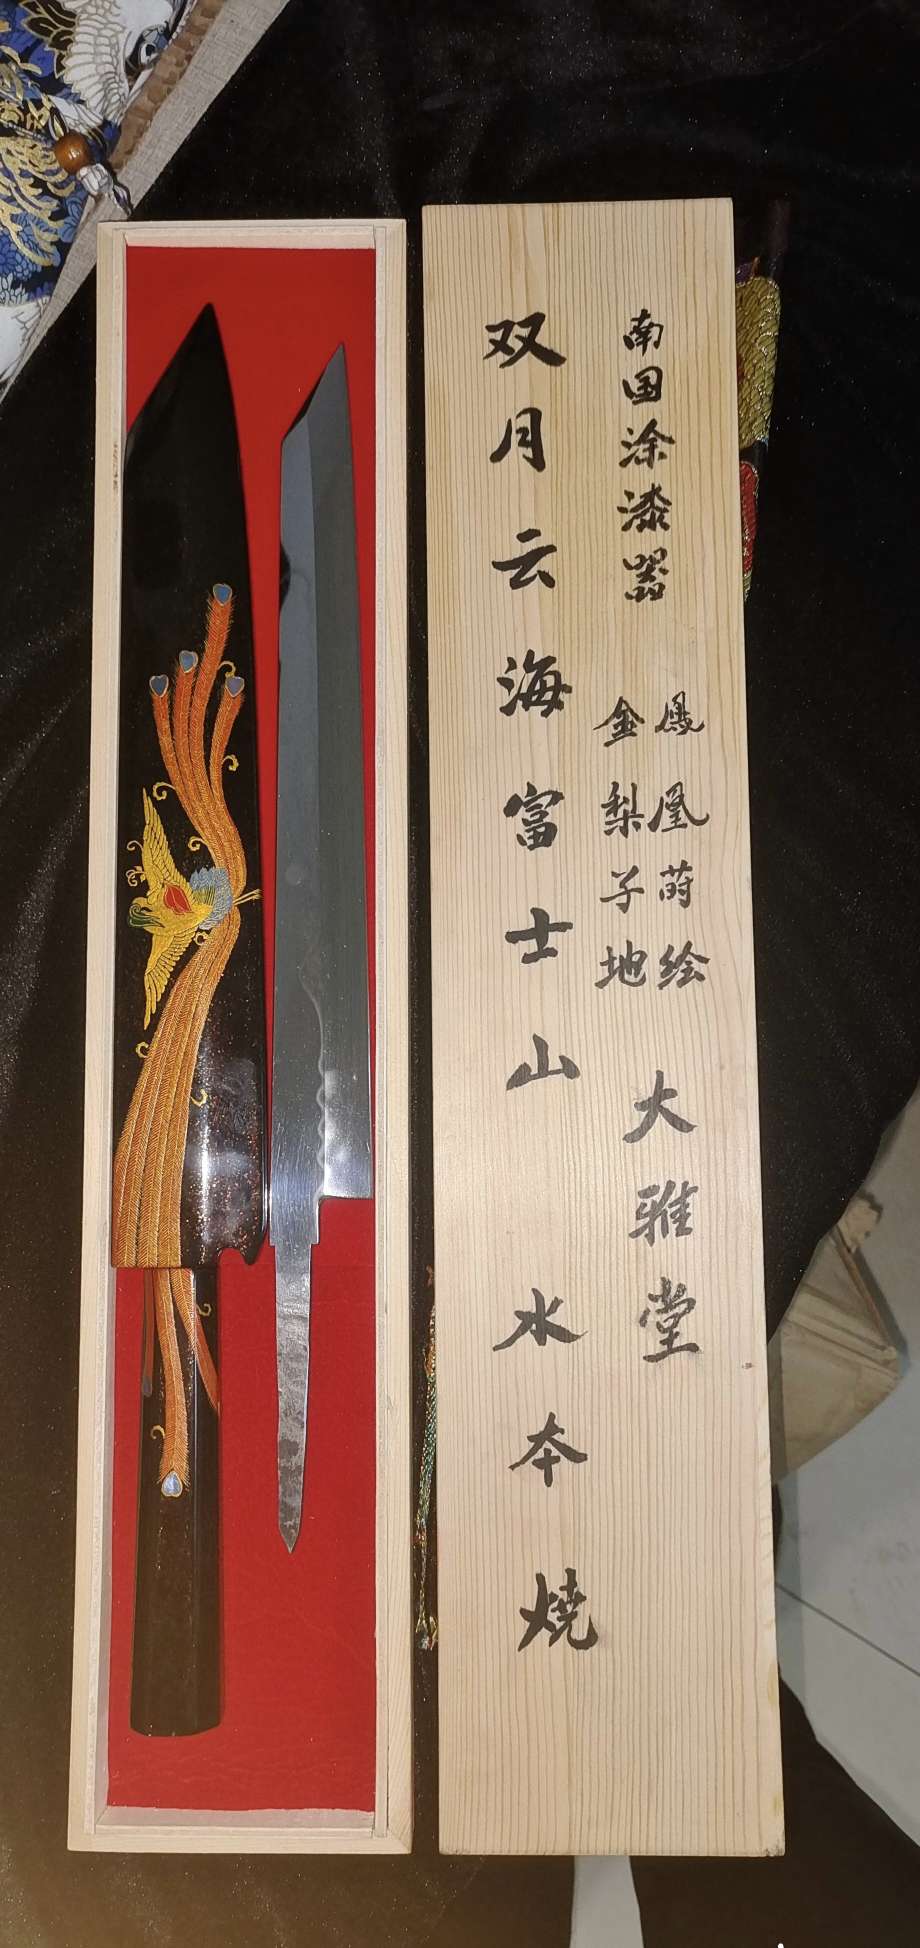 南国涂漆器
鳳凰蒔绘
金梨子地
大雅堂
双月云海富士山
水本焼